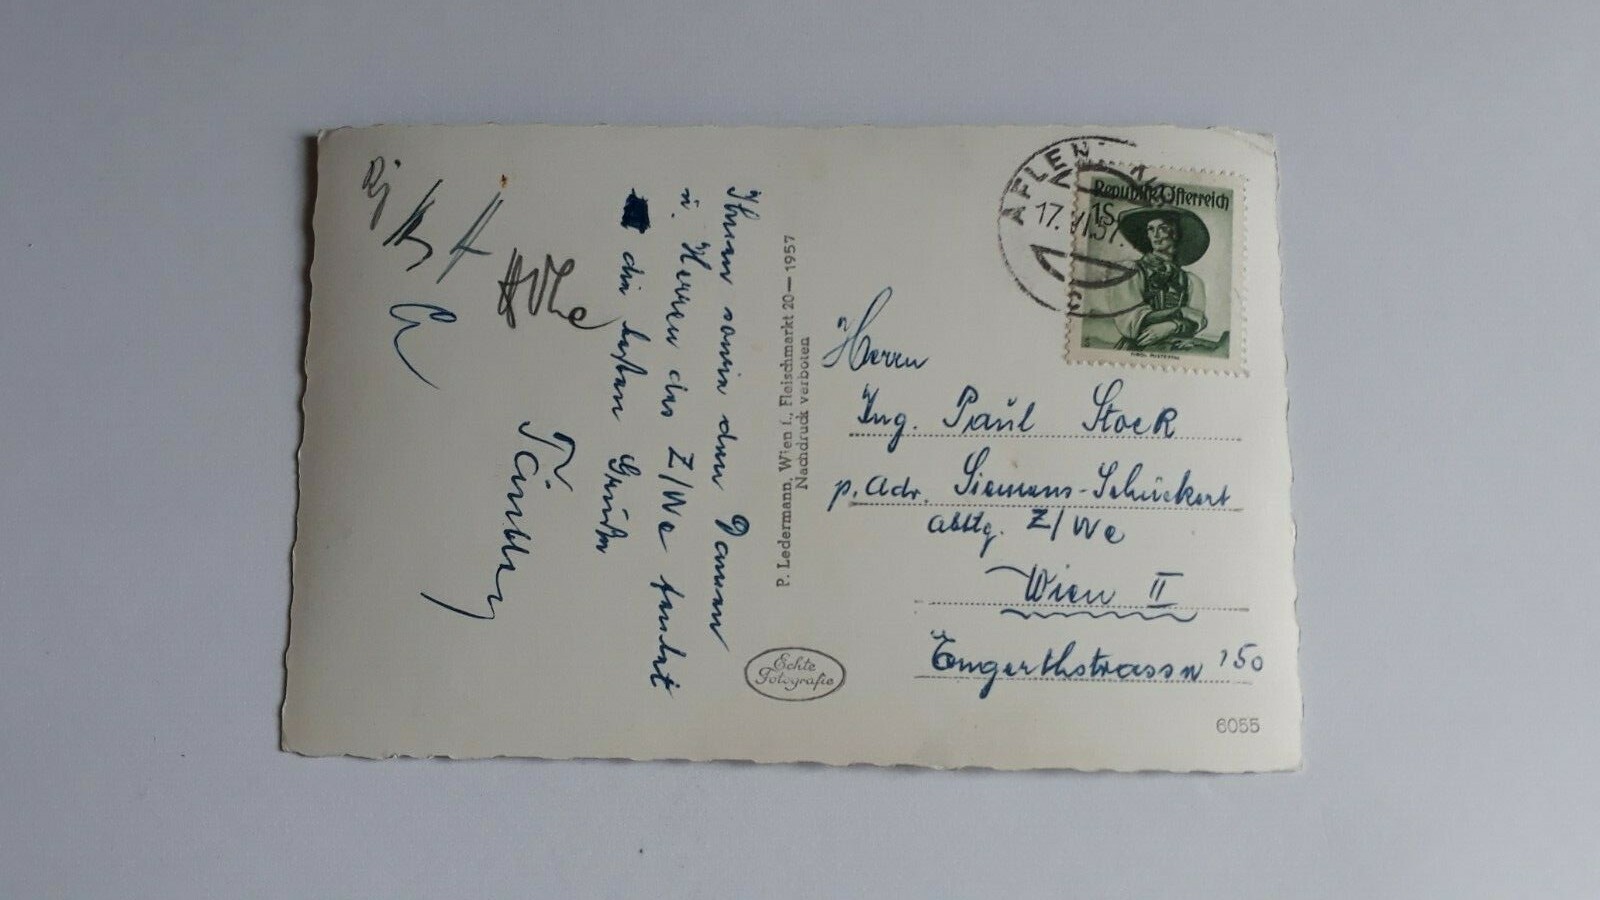 Ihnen sowie den Damen
u. Herren des Z/We sendet
die besten Grüße
P. Ledermann, Wien I., Fleischmarkt 20—1957
Nachdruck verboten
Echte
Fotografie
AFLENZ
17. VI. 57.
Republik Österreich
1S
Herrn
Ing. Paul Stock
p. Adr. Siemens-Schückert
Abtlg. Z/We
Wien II
Engerthstrasse 150
6055